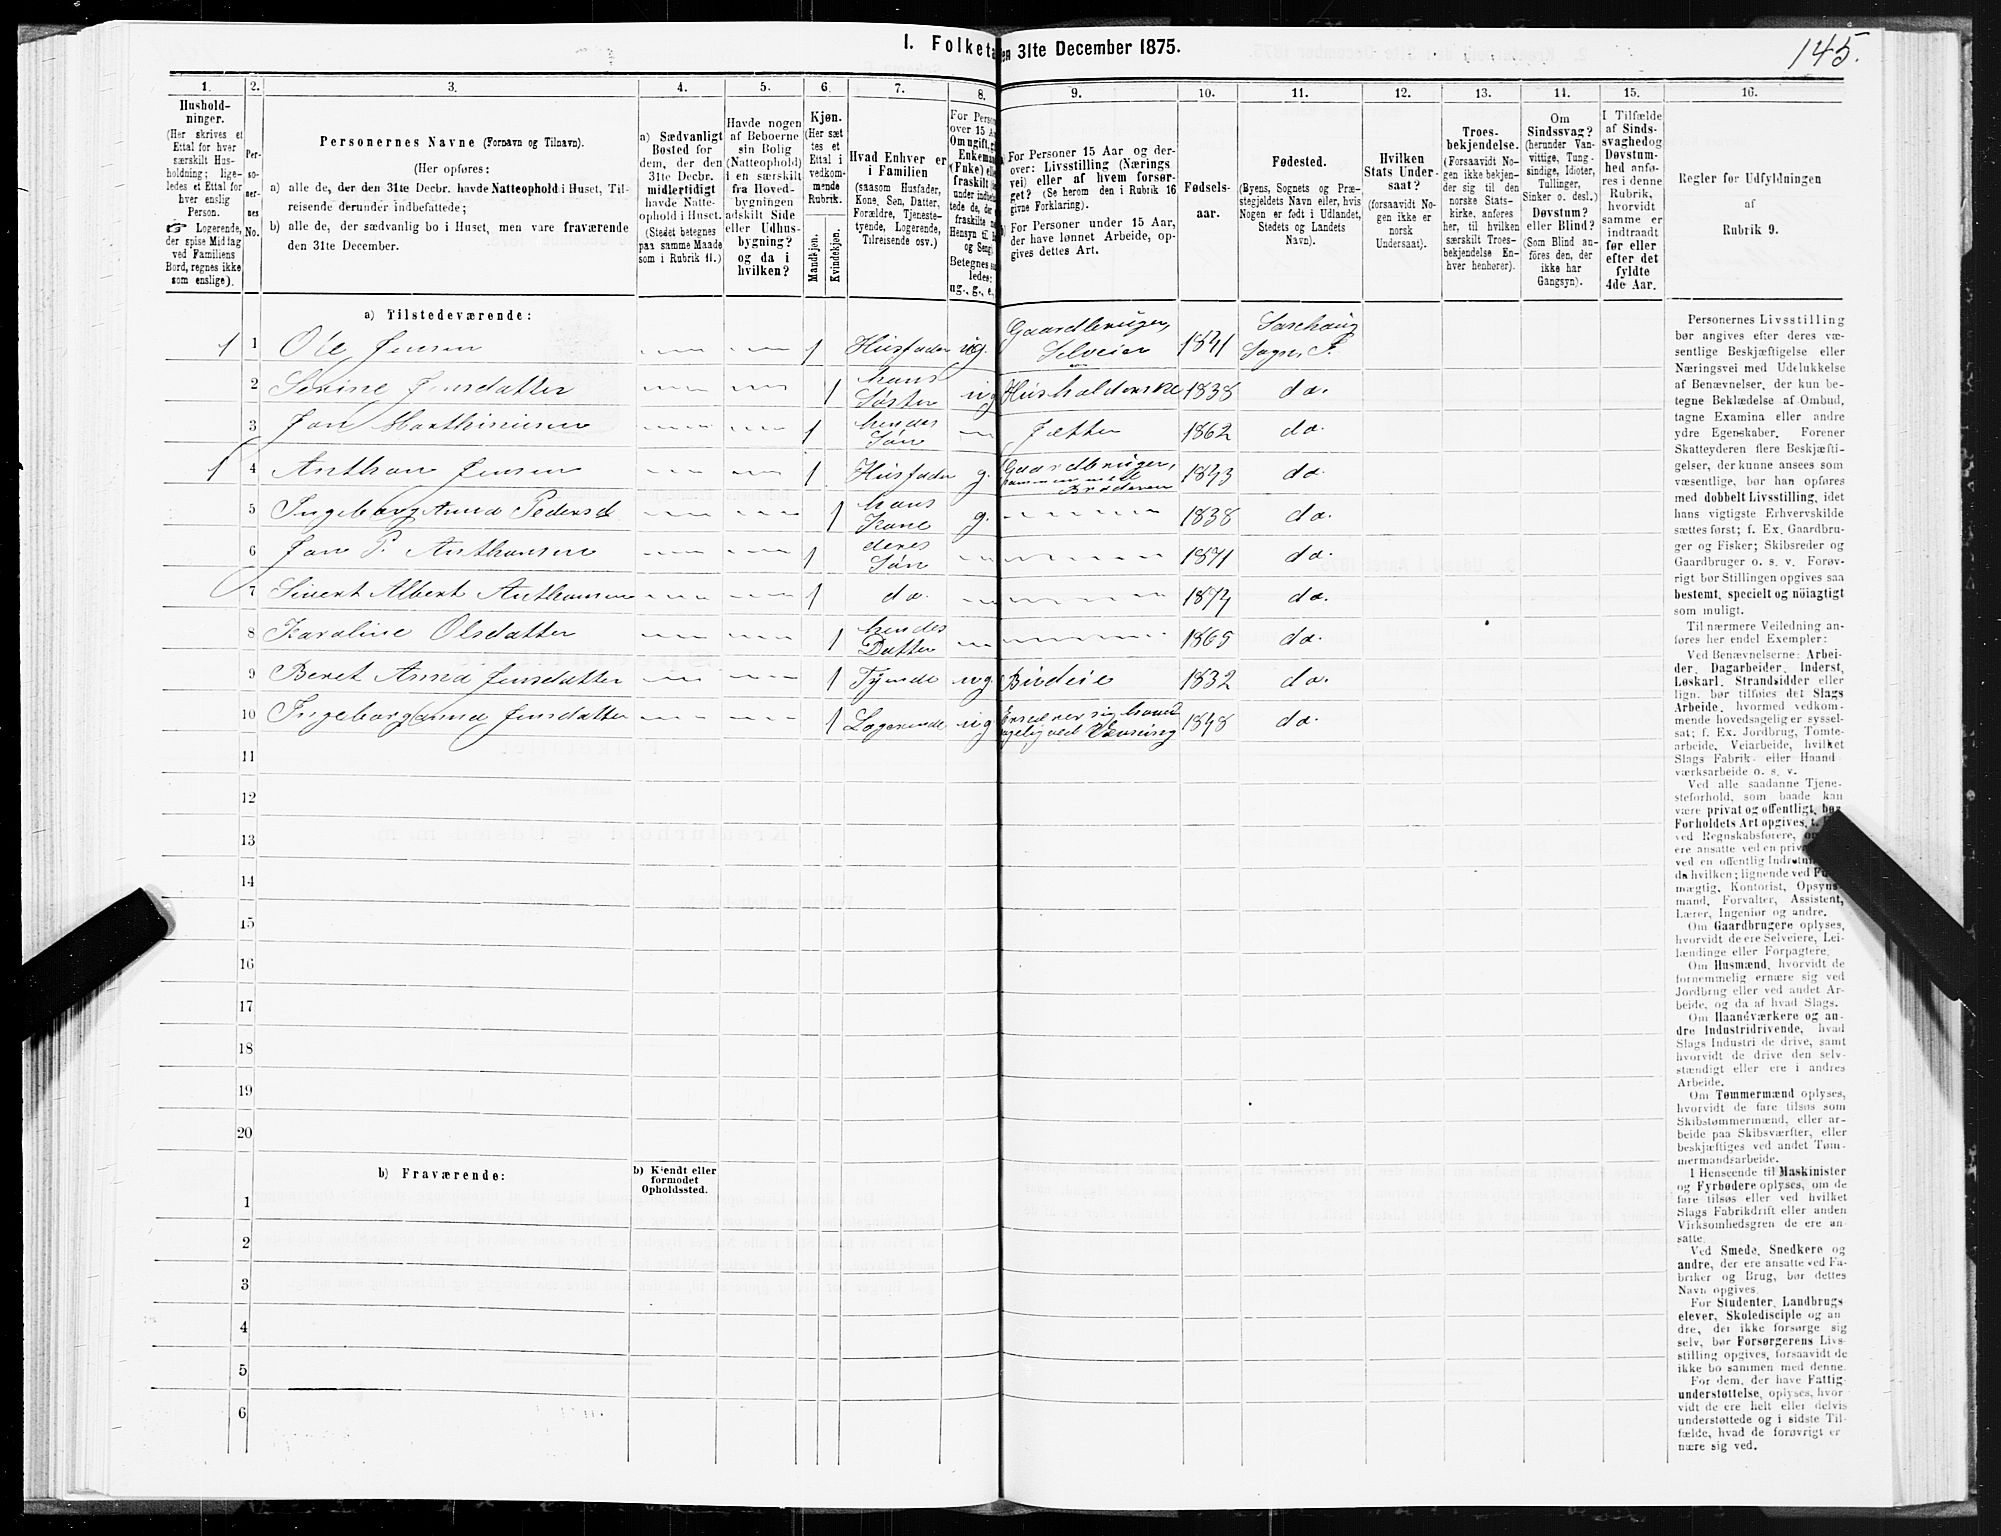 I. Folketa
en 31te December 1875.
145.
1. 2. 3. 4. 5. 6. 7. 8. 9. 10. 11. 12. 13. 14. 15. 16.
Hushold-
ninger.
(Her skrives et
Ettal for hver
særskilt Hus-
holdning; lige-
ledes et Ettal for
hver enslig
Person.
☞ Logerende,
der spise Middag
ved Familiens
Bord, regnes ikke
som enslige).
Per-
so-
ner-
nes
No.
Personernes Navne (Fornavn og Tilnavn).
(Her opføres:
a) alle de, der den 31te Decbr. havde Natteophold i Huset, Til-
reisende derunder indbefattede;
b) alle de, der sædvanlig bo i Huset, men vare fraværende
den 31te December.
a) Sædvanligt
Bosted for
dem, der den
31te Decbr.
midlertidigt
havde Natte-
ophold i Huset.
(Stedet betegnes
paa samme Maade
som i Rubrik 11.)
Havde nogen
af Beboerne
sin Bolig
(Natteophold)
i en særskilt
fra Hoved-
bygningen
adskilt Side
eller Udhus-
bygning?
og da i
hvilken?
Kjøn.
(Her sæt
tes et
Ettal i
vedkom-
mende
Rubrik.
Mandkjøn.
Kvindekjøn.
Hvad Enhver er
i Familien
(saasom Husfader,
Kone, Søn, Datter,
Forældre, Tjeneste-
tyende, Logerende,
Tilreisende osv.)
For Person
over 15 Aa
Om ugift, gi
Enkemand
(Enke) ell
fraskilt
Betegnes saa
ledes:
ug., g., e.,
For Personer 15 Aar og der-
over: Livsstilling (Nærings
vei) eller af hvem forsør-
get? (Se herom den i Rubrik 16
givne Forklaring).
For Personer under 15 Aar,
der have lønnet Arbeide, op-
gives dettes Art.
Fødsels-
aar.
Fødested.
(Byens, Sognets og Præ-
stegjeldets Navn eller, hvis
Nogen er født i Udlandet,
Stedets og Landets
Navn).
Hvilken
Stats Under-
saat?
(forsaavidt No-
gen ikke er
norsk
Undersaat).
Troes-
bekjendelse.
(Forsaavidt No-
gen ikke bekjen-
der sig til den
norske Stats-
kirke, anføres
her, til hvilken
særskilt Troes-
bekjendelse En-
hver henhører).
Om
Sindssvag?
(herunder Van-
vittige, Tung-
sindige, Idioter,
Tullinger,
Sinker o. desl.)
Døvstum?
eller Blind?
(Som Blind an-
føres den, der
ikke har
Gangsyn).
I Tilfælde
af Sinds-
svaghed og
Døvstum-
hed anfø-
res i denne
Rubrik,
hvorvidt
samme er
indtraadt
før eller
efter det
fyldte
4de Aar.
Regler for Udfyldningen
af
Rubrik 9.
a) Tilstedeværende:
1 1 Ole Jensen 1 Husfader ug. Gaardbruger, Selveier 1841 Sogn, P.
2 Serine Jensdatter 1 hans Søster ug Husholderske 1838 do.
3 Jon Marthinusen 1 hendes Søn Jætter 1862 do.
1 4 Anthon Jensen 1 Husfader g. Gaardbruger, sammen med Broderen 1843 do.
5 Ingeborg Anna Pedersd 1 hans Kone g. 1838 do.
6 Jon P. Anthonsen 1 deres Søn 1871 do.
7 Sivert Albert Anthonsen 1 do. 1874 do.
8 Karoline Olsdatter 1 hendes Datter 1865 do.
9 Beret Anna Jensdatter 1 Tyende ug Budeie 1832 do.
10 Ingeborganna Jensdatter 1 Logerende ug Ernærer sig hoved ved Vævning 1848 do.
11
12
13
14
15
16
17
18
19
20
b) Fraværende:
b) Kjendt eller
formodet
Opholdssted.
1
2
3
4
5
6
Personernes Livsstilling
bør angives efter deres væ-
sentlige Beskjæftigelse eller
Næringsvei med Udelukkelse
af Benævnelser, der kun be-
tegne Beklædelse af Ombud,
tagne Examina eller andre
ydre Egenskaber. Forener
Skatteyderen flere Beskjæfti-
gelser, der kunne ansees som
væsentlige, bør han opføres
med dobbelt Livsstilling, idet
hans vigtigste Erhvervskilde
sættes først; f. Ex. Gaardbru-
ger og Fisker; Skibsreder og
Gaardbruger o. s. v. Forøv-
rigt bør Stillingen opgives saa
bestemt, specielt og nöiagtigt
som muligt.
Til nærmere Veiledning an-
føres her endel Exempler:
Ved Benævnelserne: Arbei-
der, Dagarbeider, Inderst,
Løskarl, Strandsidder eller
lign. bør tilføies det Slags
Arbeide, hvormed vedkom-
mende hovedsagelig er syssel-
sat; f. Ex. Jordbrug, Tomte-
arbeide, Veiarbeide, hvilket
Slags Fabrik- eller Haand
værksarbeide o. s. v.
Ved alle saadanne Tjene-
steforhold, som baade kan
være privat og offentligt, bør
Forholdets Art opgives, t.
ved Regnskabsførere, o
ere ansatte ved en priva
ved en offentlig Indretni
da hvilken; lignende ved Ful
mægtig, Kontorist, Opsyns-
mand, Forvalter, Assistent,
Lærer, Ingeniør og andre.
Om Gaardbrugere oplyses,
hvorvidt de ere Selveiere, Lei-
lændinge eller Forpagtere.
Om Husmænd, hvorvidt de
fornemmelig ernære sig ved
Jordbrug eller ved andet Ar-
beide, og da af hvad Slags.
Om Haandværkere og an-
dre Industridrivende, hvad
Slags Industri de drive, samt
hvorvidt de drive den selv-
stændigt eller ere i andres
Arbeide.
Om Tømmermænd oplyses,
hvorvidt de fare tilsøs som
Skibstømmermænd, eller ar-
beide paa Skibsværfter, eller
beskjæftiges ved andet Tøm-
mermandsarbeide.
I Henseende til Maskinister
og Fyrbødere oplyses, om de
fare tilsøs eller ved hvilket
Slags Fabrikdrift eller anden
Virksomhedsgren de ere an-
satte.
Ved Smede, Snedkere og
andre, der ere ansatte ved Fa-
briker og Brug, bør dettes
Navn opgives.
For Studenter, Landbrugs
elever, Skoledisciple og an-
dre, der ikke forsørge sig
selv, bør Forsørgerens Livs-
stilling opgives, forsaavidt de
ikke bo sammen med denne.
For dem, der have Fattig
understøttelse, oplyses, hvor
vidt de ere helt eller delvis
understøttede og i sidste Til-
fælde, hvad de forøvrigt er
nære sig ved.